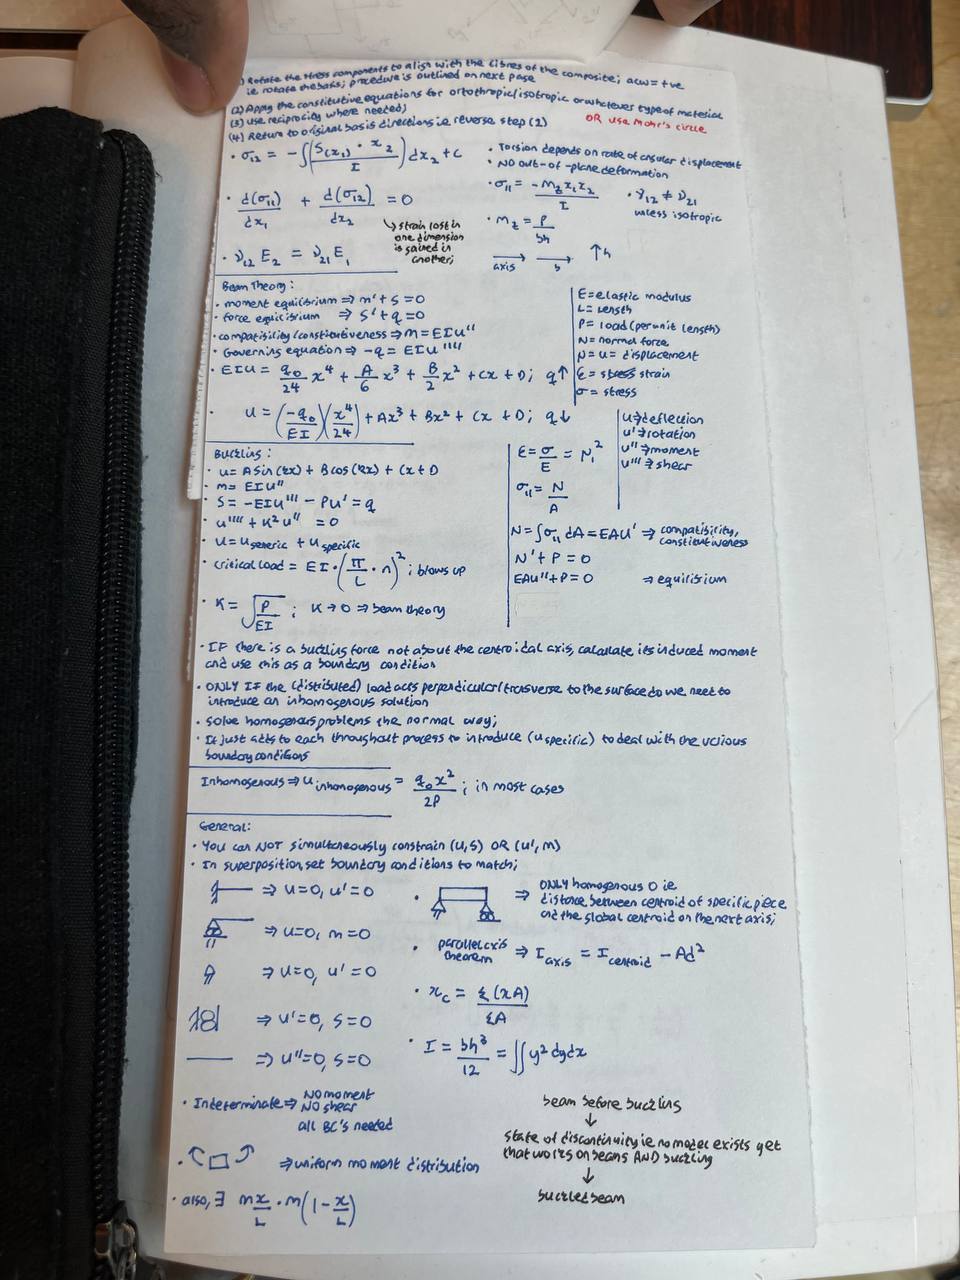 1) Rotate the stress components to align with the fibres of the composite; acw = +ve
i.e rotate the basis; procedure is outlined on next page
(2) Apply the constitutive equations for orthotropic/isotropic or whatever type of material
(3) Use reciprocity where needed;
OR use Mohr's circle
(4) Return to original basis directions i.e reverse step (1)
• σ₁₂ = -∫(S(x₁) · x₂ / I) dx₂ + C
• Torsion depends on rate of angular displacement
• NO out-of-plane deformation
• d(σ₁₁)/dx₁ + d(σ₁₂)/dx₂ = 0
• σ₁₁ = -M₂x₁x₂ / I
• ν₁₂ ≠ ν₂₁
unless isotropic
↳ strain lost in
one dimension
is gained in
another;
• M₂ = P/bh
• ν₁₂E₂ = ν₂₁E₁
→ axis → b ↑h
Beam Theory:
• moment equilibrium ⇒ m' + s = 0
• force equilibrium ⇒ s' + q = 0
• compatibility/constitutiveness ⇒ m = EIu''
• Governing equation ⇒ -q = EIu''''
• EIu = q₀/24 x⁴ + A/6 x³ + B/2 x² + Cx + D; q↑
• u = (-q₀/EI)(x⁴/24) + Ax³ + Bx² + Cx + D; q↓
E = elastic modulus
L = Length
P = load (per unit length)
N = normal force
μ = u = displacement
ε = stress strain
σ = stress
u → deflection
u' → rotation
u'' → moment
u''' → shear
Buckling:
• u = A sin(kx) + B cos(kx) + Cx + D
• m = EIu''
• S = -EIu''' - Pu' = q
• u'''' + k²u'' = 0
• u = u generic + u specific
• critical load = EI · (π/L · n)²; blows up
• K = √(P/EI); K → 0 ⇒ beam theory
σ₁₁ = N/A
N = ∫σ₁₁ dA = EAu' ⇒ compatibility, constitutiveness
N' + P = 0
EAu'' + P = 0 ⇒ equilibrium
• IF there is a buckling force not about the centroidal axis, calculate its induced moment
and use this as a boundary condition
• ONLY IF the (distributed) load acts perpendicular/transverse to the surface do we need to
introduce an inhomogenous solution
• solve homogenous problems the normal way;
• It just adds to each throughout process to introduce (u specific) to deal with the various
boundary conditions
Inhomogenous ⇒ u inhomogenous = q₀x²/2P; in most cases
General:
• You can NOT simultaneously constrain (u, s) OR (u', m)
• In superposition, set boundary conditions to match;
⇒ u=0, u'=0
⇒ u=0, m=0
⇒ u=0, u'=0
⇒ u'=0, s=0
⇒ u''=0, s=0
• ⇒ ONLY homogenous 0 ie
distance between centroid of specific piece
and the global centroid on the next axis;
• parallel axis
theorem ⇒ I axis = I centroid - Ad²
• x_c = Σ(xA) / ΣA
• I = bh³/12 = ∬y² dy dx
• Indeterminate ⇒ No moment
No shear
all BC's needed
• ⇒ uniform moment distribution
• also, ∃ mx/L · m(1 - x/L)
beam before buckling
↓
state of discontinuity ie no model exists yet
that works on beams AND buckling
↓
buckled beam